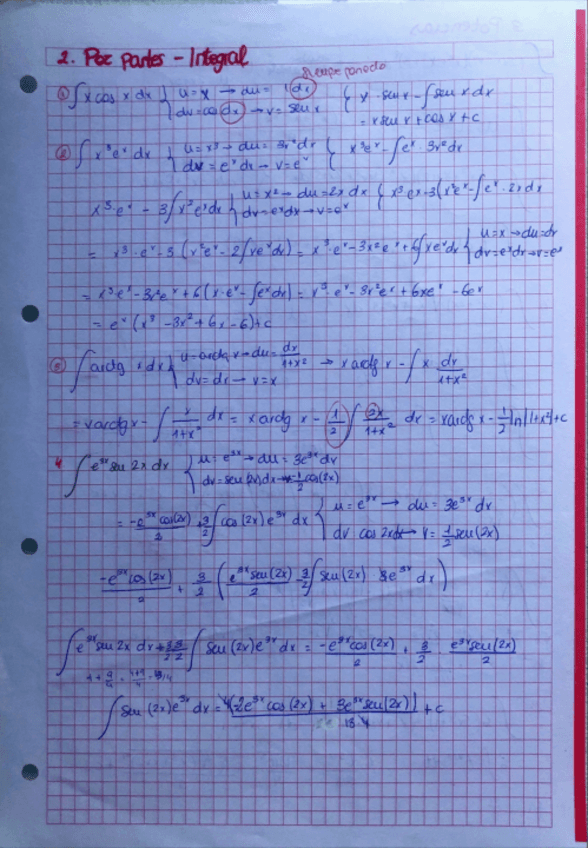 2. Por partes - Integral
Siempre poner dx
① ∫ x cos x dx { u = x → du = 1 dx { x · sen x - ∫ sen x dx
dv = cos dx → v = sen x = x sen x + cos x + c
② ∫ x³eˣ dx { u = x³ → du = 3x²dx { x³eˣ - ∫ eˣ · 3x² dx
dv = eˣ dx → v = eˣ
x³·eˣ - 3∫ x²eˣ dx { u = x² → du = 2x dx { x³eˣ - 3(x²eˣ - ∫ eˣ · 2x dx
dv = eˣdx → v = eˣ
= x³·eˣ - 3 (x²eˣ - 2∫ xeˣ dx) = x³·eˣ - 3x²eˣ + 6∫ xeˣdx { u = x → du = dx
dv = eˣdx → v = eˣ
= x³eˣ - 3x²eˣ + 6(x·eˣ - ∫eˣdx) = x³·eˣ - 3x²eˣ + 6xeˣ - 6eˣ
= eˣ (x³ - 3x² + 6x - 6) + c
③ ∫ arctg x dx { u = arctg x → du = dx/1+x² → x arctg x - ∫ x dx/1+x²
dv = dx → v = x
= x arctg x - ∫ x/1+x² dx = x arctg x - 1/2 ∫ 2x/1+x² dx = x arctg x - 1/2 ln|1+x²| + c
4 ∫ e³ˣ sen 2x dx { u = e³ˣ → du = 3e³ˣ dx
dv = sen (2x) dx → v = -1/2 cos(2x)
= -e³ˣ cos(2x)/2 + 3/2 ∫ cos (2x) e³ˣ dx { u = e³ˣ → du = 3e³ˣ dx
dv cos 2x dx → v = 1/2 sen (2x)
-e³ˣ cos (2x)/2 + 3/2 ( e³ˣ sen (2x)/2 - 3/2 ∫ sen (2x) · 3e³ˣ dx )
∫ e³ˣ sen 2x dx + 3·3/2·2 ∫ sen (2x) e³ˣ dx = -e³ˣ cos (2x)/2 + 3/2 · e³ˣ sen (2x)/2
1 + 9/4 = 4+9/4 = 13/4
∫ sen (2x) e³ˣ dx = 4(-2e³ˣ cos (2x) + 3e³ˣ sen (2x))/13·4 + c